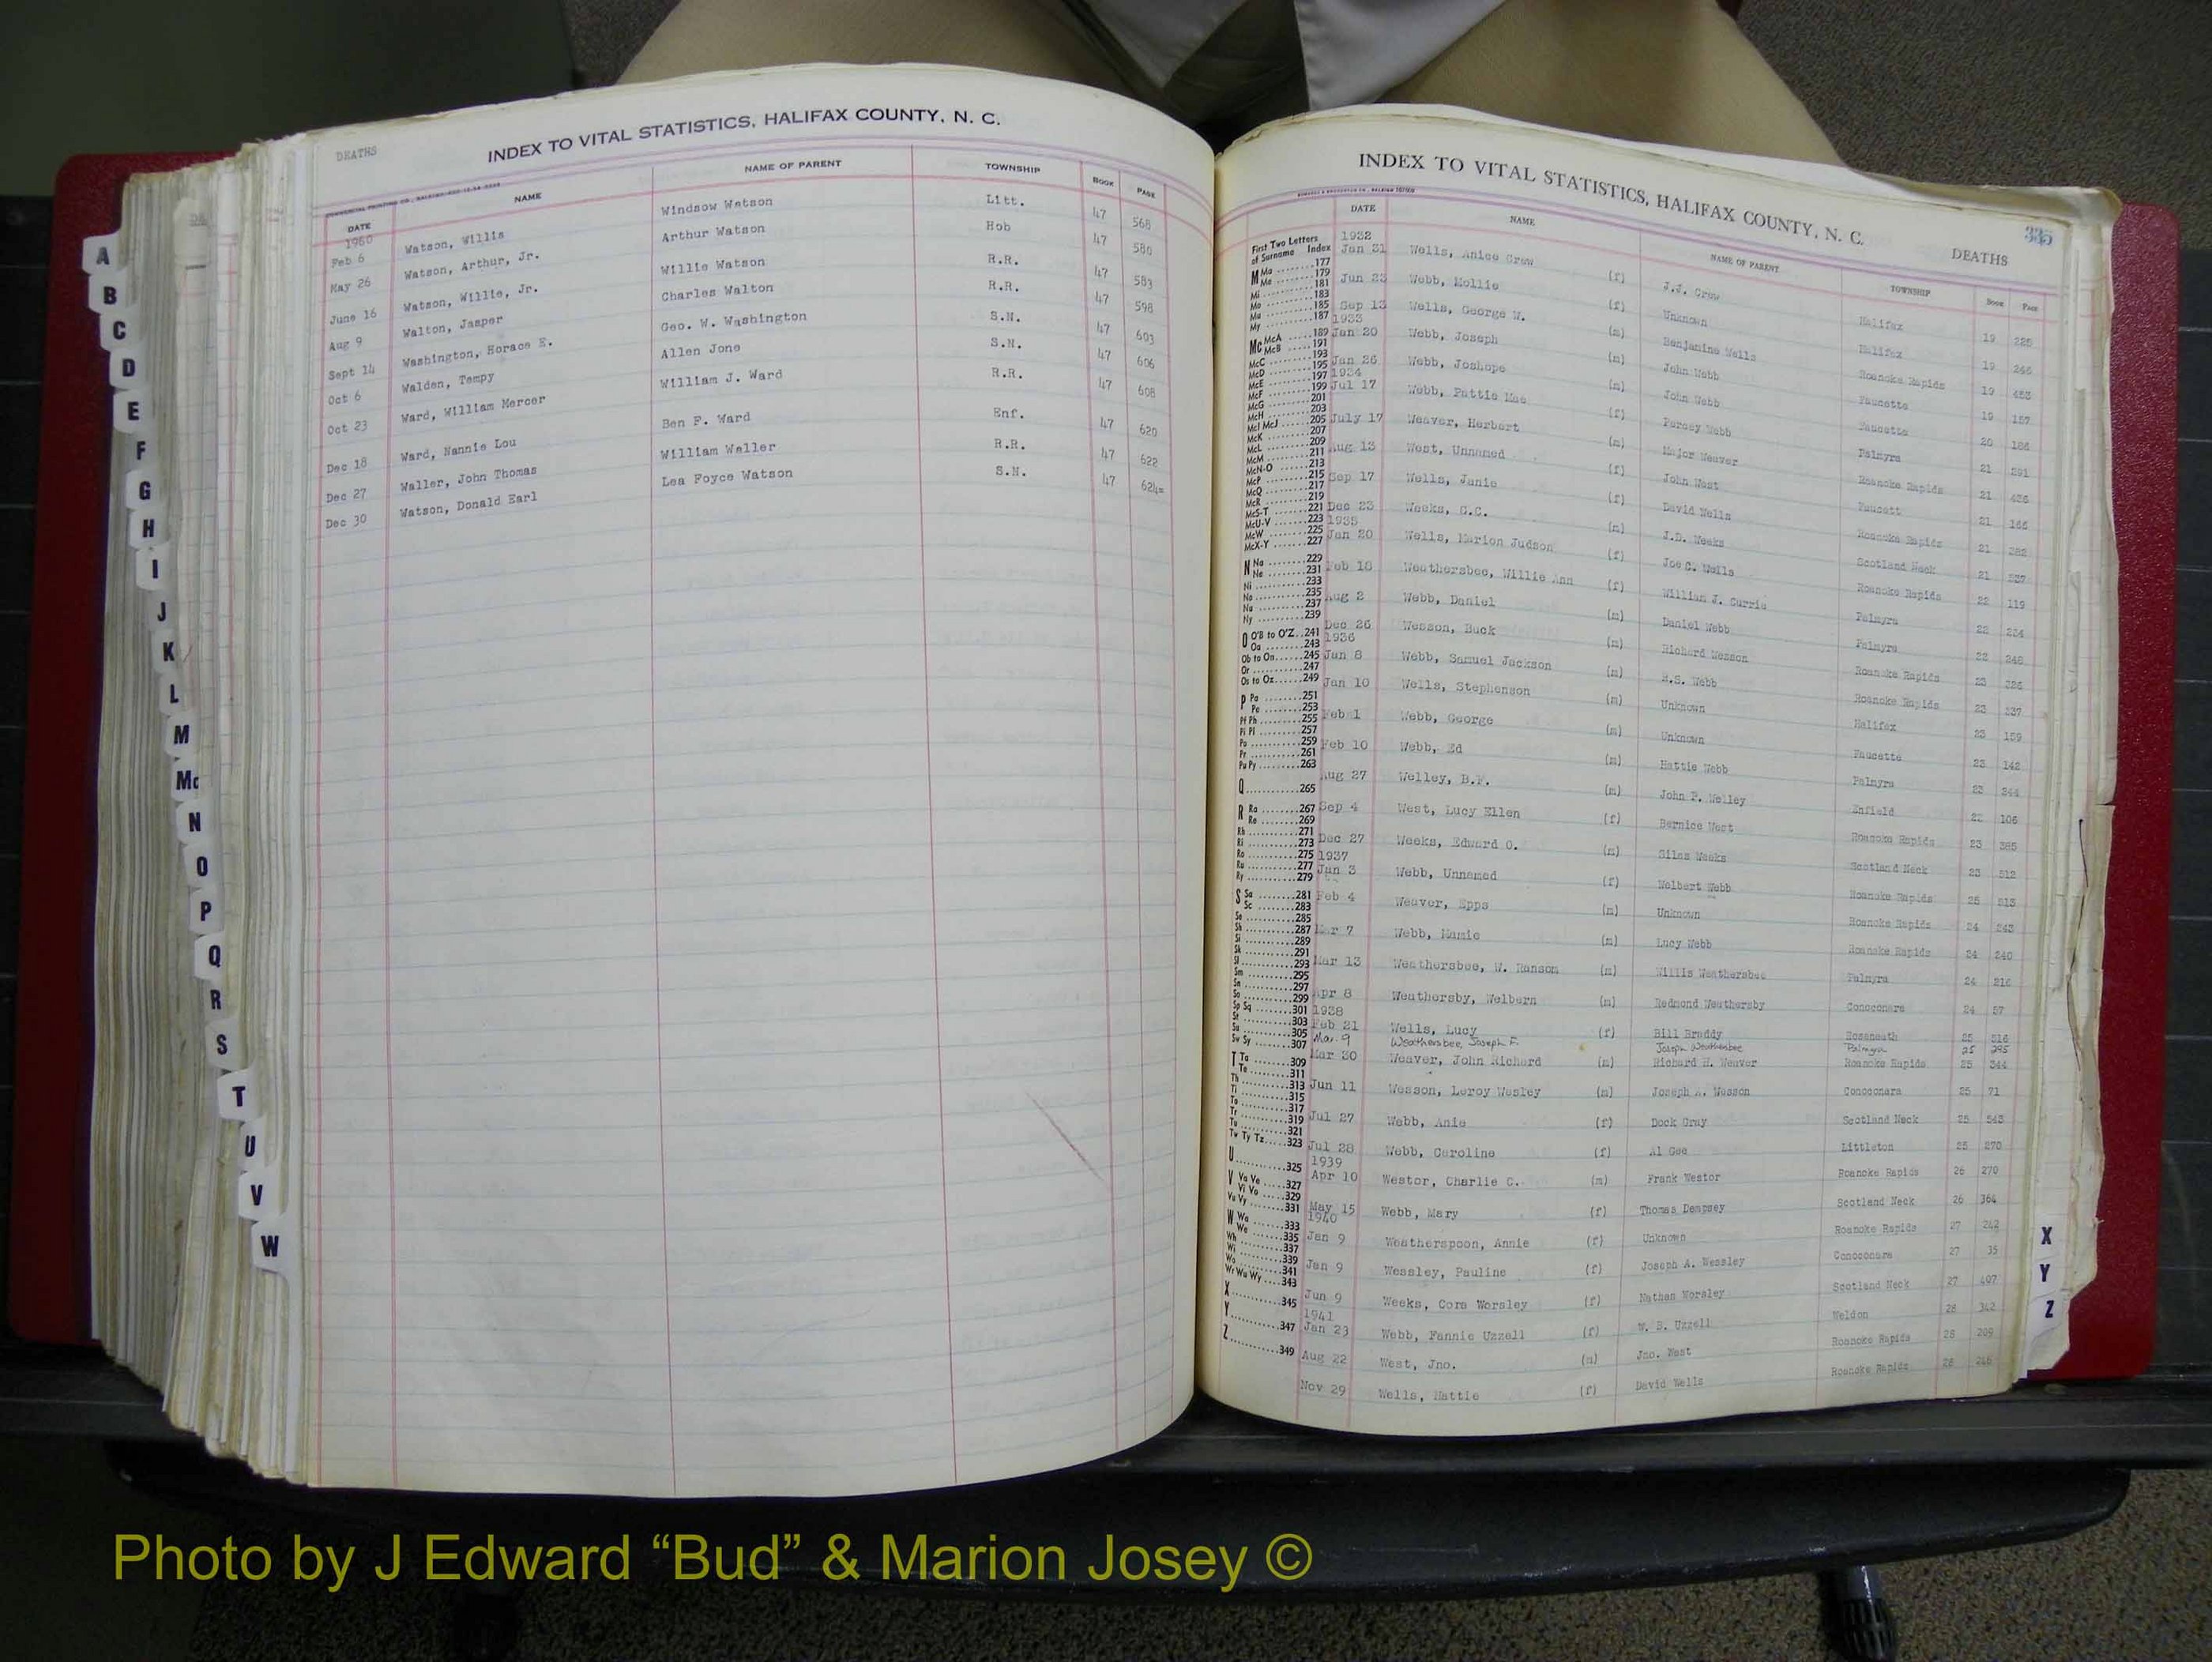 DEATHS
INDEX TO VITAL STATISTICS, HALIFAX COUNTY, N. C.
DATE NAME NAME OF PARENT TOWNSHIP BOOK PAGE
1960
Feb 6 Watson, Willis Windsow Watson Litt. 47 568
May 26 Watson, Arthur, Jr. Arthur Watson Hob 47 580
June 16 Watson, Willie, Jr. Willie Watson R.R. 47 583
Aug 9 Walton, Jasper Charles Walton R.R. 47 598
Sept 14 Washington, Horace E. Geo. W. Washington S.N. 47 603
Oct 6 Walden, Tempy Allen Jone S.N. 47 606
Oct 23 Ward, William Mercer William J. Ward R.R. 47 608
Dec 18 Ward, Nannie Lou Ben F. Ward Enf. 47 620
Dec 27 Waller, John Thomas William Waller R.R. 47 622
Dec 30 Watson, Donald Earl Lea Foyce Watson S.N. 47 624
A
B
C
D
E
F
G
H
I
J
K
L
M
Mc
N
O
P
Q
R
S
T
U
V
W
INDEX TO VITAL STATISTICS, HALIFAX COUNTY, N. C.
335
DEATHS
DATE NAME NAME OF PARENT TOWNSHIP Book Page
First Two Letters of Surname Index
1932
Jan 31 Wells, Anice Crew (f) J.J. Crew Halifax 19 225
Jun 23 Webb, Mollie (f) Unknown Halifax 19 246
Sep 13 Wells, George W. (m) Benjamine Wells Roanoke Rapids 19 453
1933
Jan 20 Webb, Joseph (m) John Webb Faucette 19 157
Jan 26 Webb, Joshope (m) John Webb Faucette 20 186
1934
Jul 17 Webb, Pattie Mae (f) Percey Webb Palmyra 21 291
July 17 Weaver, Herbert (m) Major Weaver Roanoke Rapids 21 436
Aug 13 West, Unnamed (f) John West Faucett 21 166
Sep 17 Wells, Janie (f) David Wells Roanoke Rapids 21 382
Dec 23 Weeks, G.C. (m) J.D. Weeks Scotland Neck 21 537
1935
Jan 20 Wells, Marion Judson (f) Joe C. Wells Roanoke Rapids 22 119
Feb 18 Weathersbee, Willie Ann (f) William J. Currie Palmyra 22 224
Aug 2 Webb, Daniel (m) Daniel Webb Palmyra 22 248
Dec 26 Wesson, Buck (m) Richard Wesson Roanoke Rapids 23 326
1936
Jan 8 Webb, Samuel Jackson (m) H.S. Webb Roanoke Rapids 23 337
Jan 10 Wells, Stephenson (m) Unknown Halifax 23 159
Feb 1 Webb, George (m) Unknown Faucette 23 142
Feb 10 Webb, Ed (m) Hattie Webb Palmyra 23 244
Aug 27 Welley, B.F. (m) John P. Welley Enfield 23 106
Sep 4 West, Lucy Ellen (f) Bernice West Roanoke Rapids 23 385
Dec 27 Weeks, Edward O. (m) Silas Weeks Scotland Neck 23 512
1937
Jan 3 Webb, Unnamed (f) Welbert Webb Roanoke Rapids 25 313
Feb 4 Weaver, Epps (m) Unknown Roanoke Rapids 24 243
Mar 7 Webb, Mamie (m) Lucy Webb Roanoke Rapids 24 240
Mar 13 Weathersbee, W. Ransom (m) Willis Weathersbee Palmyra 24 216
Apr 8 Weathersby, Welbern (m) Redmond Weathersby Conoconara 24 57
1938
Feb 21 Wells, Lucy (f) Bill Braddy Roseneath 25 516
Mar. 9 Weathersbee, Joseph F. Joseph Weathersbee Palmyra 25 295
Mar 30 Weaver, John Richard (m) Richard H. Weaver Roanoke Rapids 25 344
Jun 11 Wesson, Leroy Wesley (m) Joseph A. Wesson Conoconara 25 71
Jul 27 Webb, Anie (f) Dock Gray Scotland Neck 25 543
Jul 28 Webb, Caroline (f) Al Gee Littleton 25 270
1939
Apr 10 Westor, Charlie C. (m) Frank Westor Roanoke Rapids 26 270
May 15 Webb, Mary (f) Thomas Dempsey Scotland Neck 26 364
1940
Jan 9 Weatherspoon, Annie (f) Unknown Roanoke Rapids 27 242
Jan 9 Wessley, Pauline (f) Joseph A. Wessley Conoconara 27 35
Jun 9 Weeks, Cora Worsley (f) Nathan Worsley Scotland Neck 27 407
1941
Jan 23 Webb, Fannie Uzzell (f) W. B. Uzzell Weldon 28 342
Aug 22 West, Jno. (m) Jno. West Roanoke Rapids 28 209
Nov 29 Wells, Hattie (f) David Wells Roanoke Rapids 28 246
X
Y
Z
Photo by J Edward “Bud” & Marion Josey ©